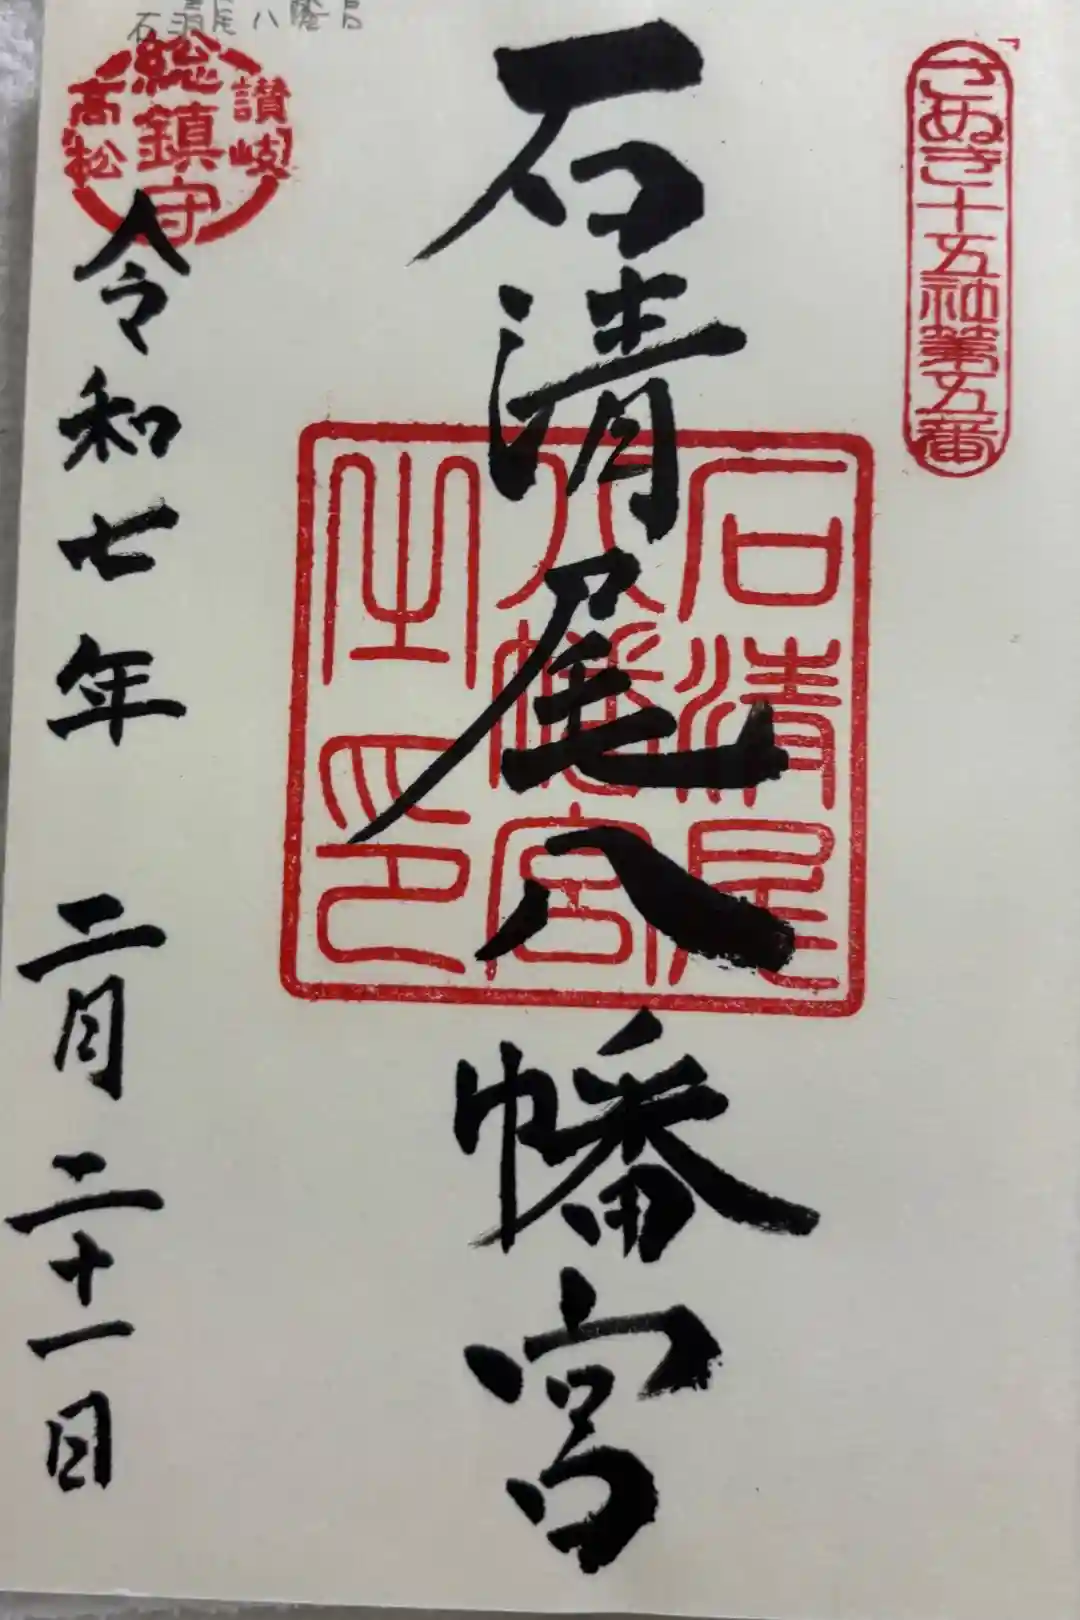 さぬき十五社第五番
石清尾八幡宮
石清尾
八幡宮
之印
讃岐
総鎮守
高松
令和七年 二月二十一日
石清尾八幡宮